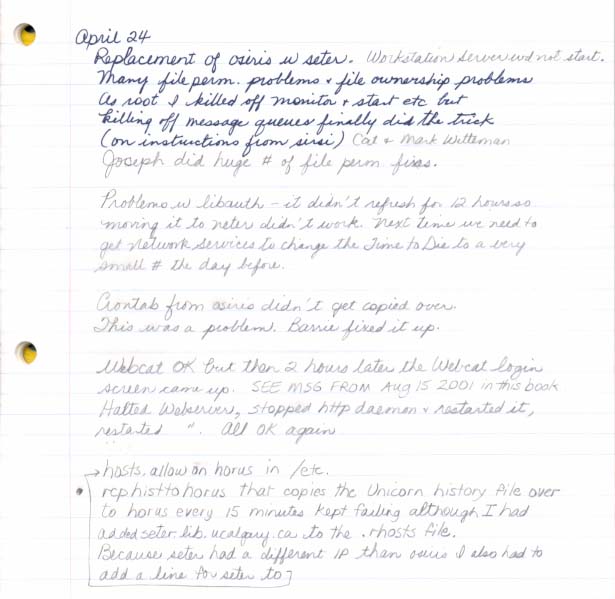 April 24
Replacement of osiris w seter. Workstation Server wd not start.
Many file perm. problems + file ownership problems
As root I killed off monitor + start etc but
killing off message queues finally did the trick
(on instructions from sirsi) Cat + Mark Witteman
Joseph did huge # of file perm fixes.
Problems w libauth - it didn't refresh for 12 hours so
moving it to neter didn't work. Next time we need to
get Network Services to change the Time to Die to a very
small # the day before.
Crontab from osiris didn't get copied over.
This was a problem. Barrie fixed it up.
Webcat OK but then 2 hours later the Webcat login
screen came up. SEE MSG FROM Aug 15 2001 in this book
Halted Webserver, stopped http daemon + restarted it,
restarted ". All OK again
→ hosts.allow on horus in /etc.
• rcphisttohorus that copies the Unicorn history file over
to horus every 15 minutes kept failing although I had
added seter.lib.ucalgary.ca to the .rhosts file.
Because seter had a different IP than osiris I also had to
add a line for seter to